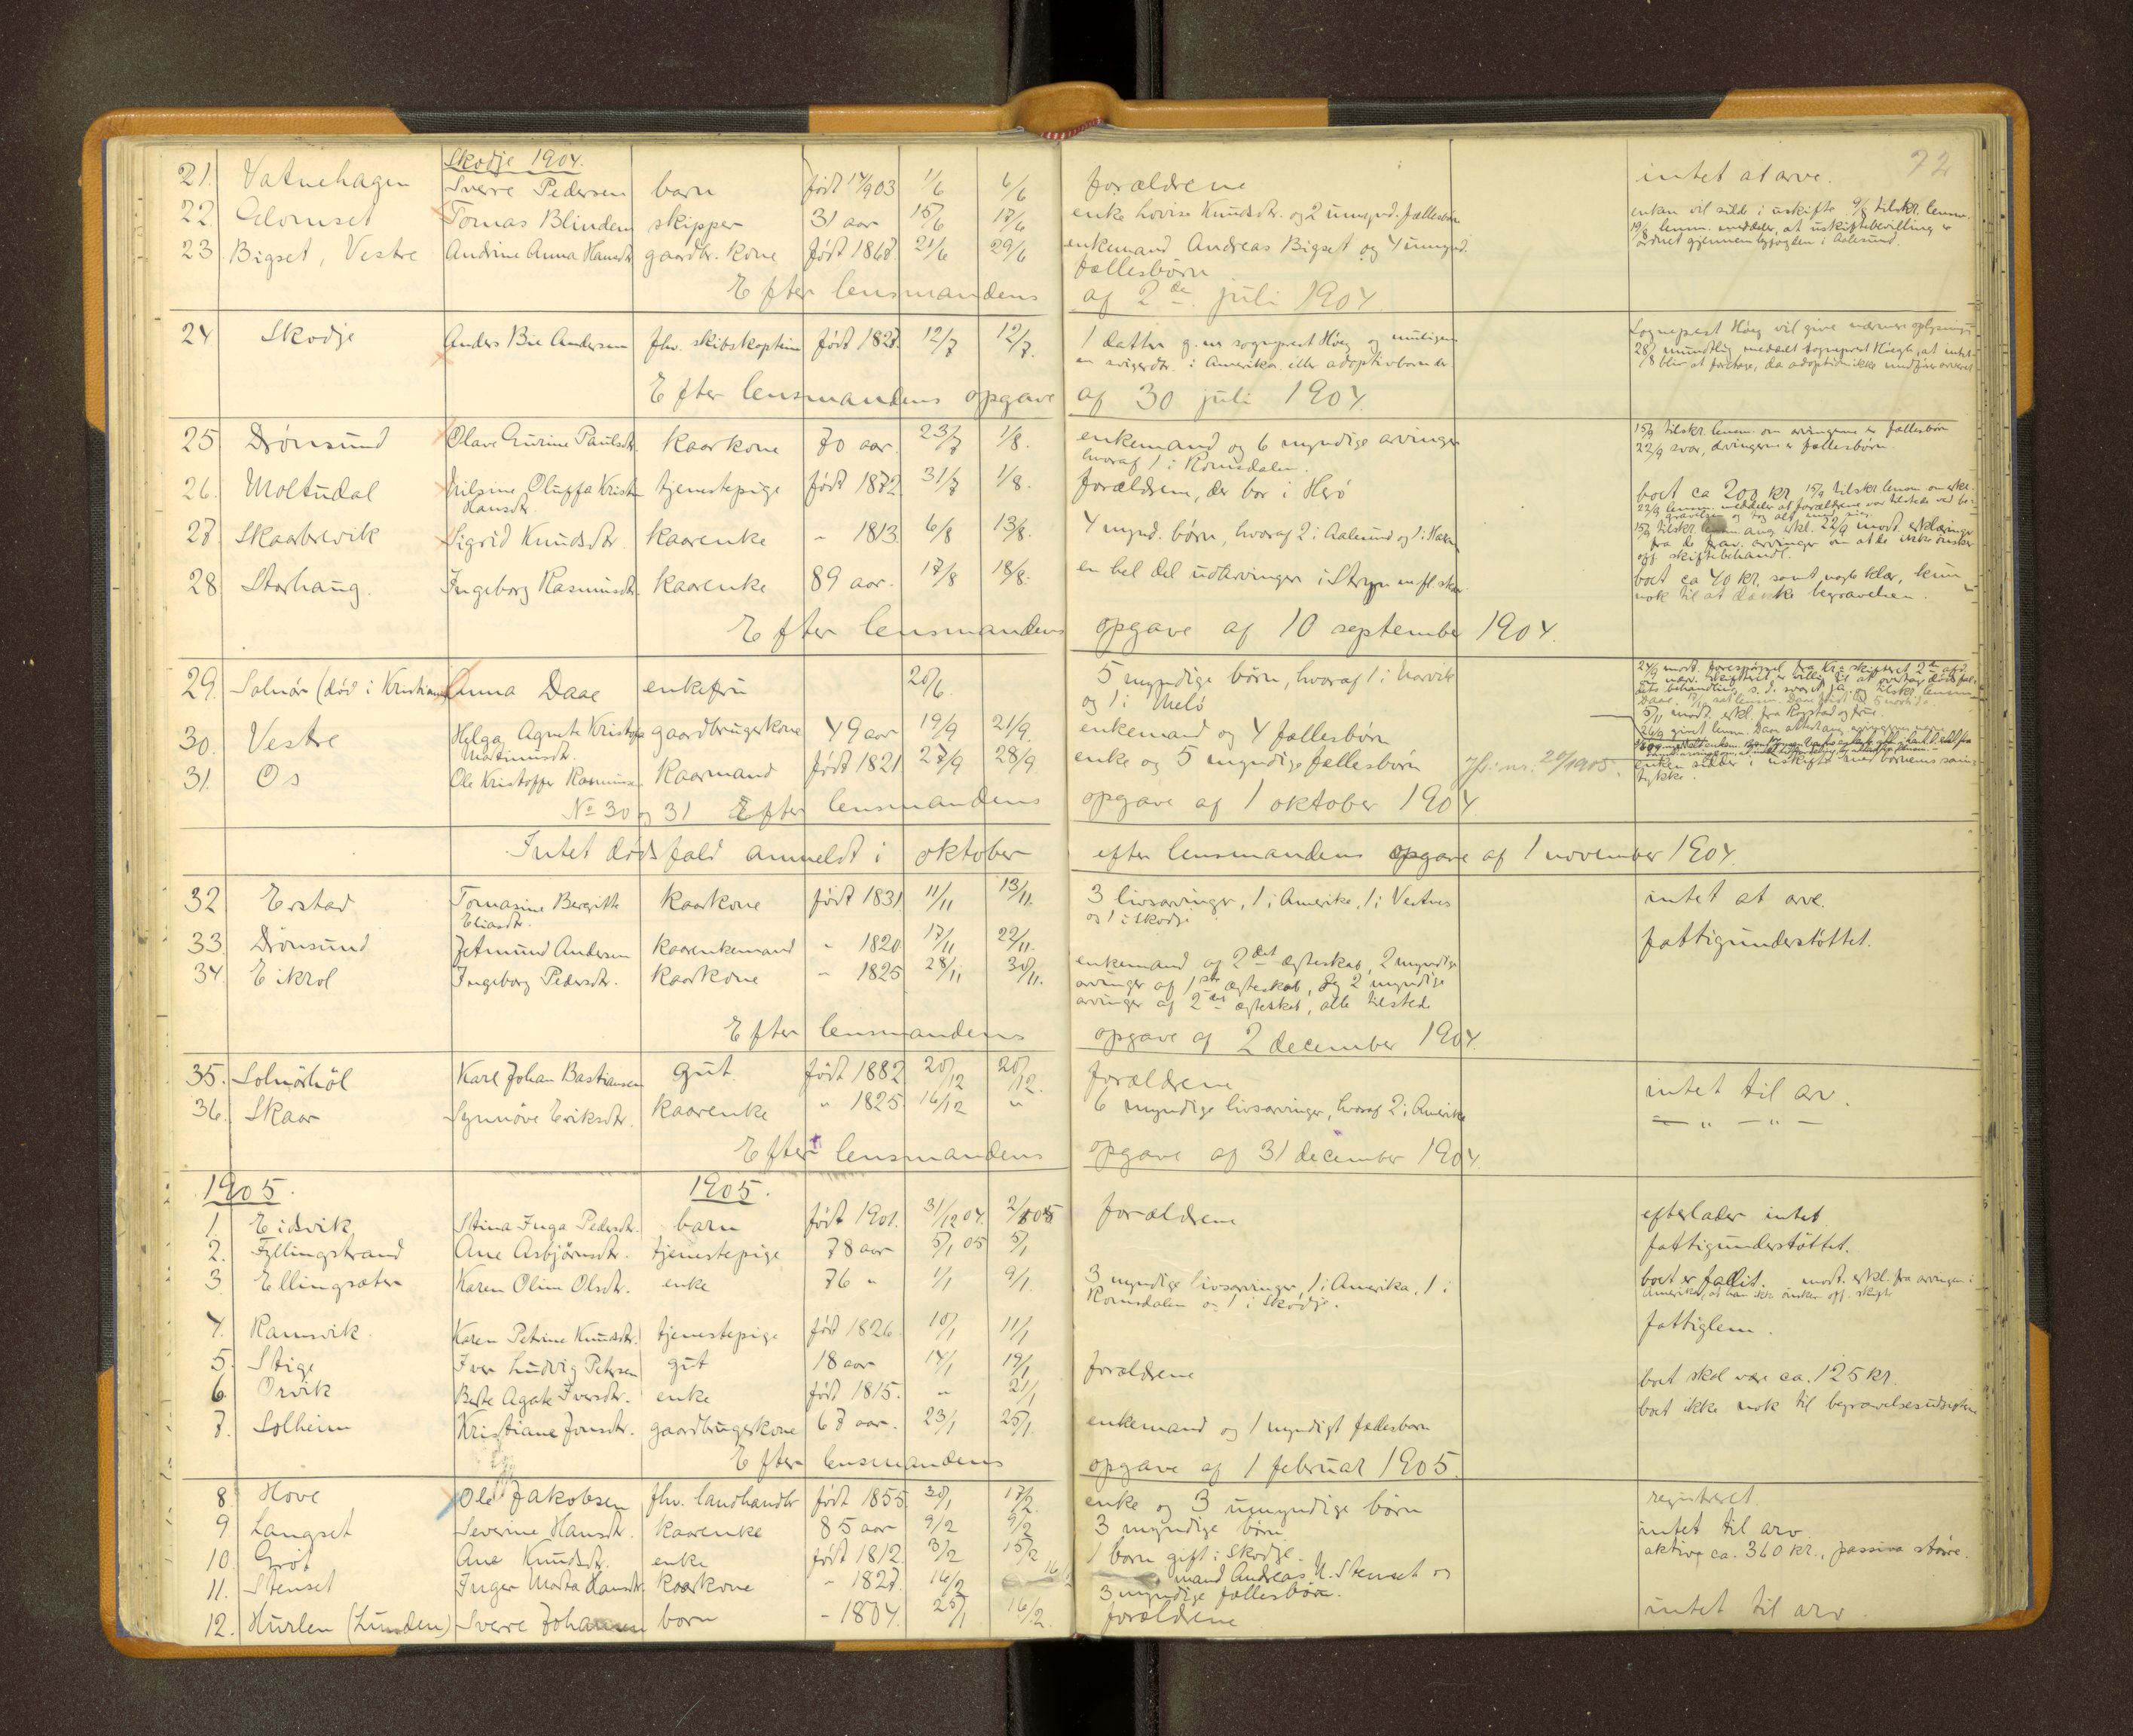 72
Skodje 1904.
21. Vatnehagen Sverre Pedersen barn født 14/9 03 1/6 6/6 forældrene intet at arve.
22. Glomset Tomas Blindem skipper 31 aar 15/6 17/6 enke Lovise Knudsdtr. og 2 umynd. fællesbørn enken vil sidde i uskifte 9/8 tilskr. lensm.
19/8 lensm. meddeler, at uskiftebevilling er
ordnet gjennem byfogden i Aalesund.
23. Bigset, Vestre Andrine Anna Hansdtr gaardbr. kone født 1867. 21/6 29/6 enkemand Andreas Bigset og 4 umynd.
fællesbørn
Efter lensmandens af 2den juli 1904
24 Skodje Anders Bie Andersen fhv. skibskaptein født 1827. 12/7 12/7. 1 datter g. m. sogneprest Høeg og muligens
en svigerdtr. i Amerika eller adoptivbarn der
Sogneprest Høeg vil give nærmere oplysning
28/8 mundtlig meddelt sogneprest Høegh, at intet
blir at foretage, da adoption ikke medfører arveret
Efter lensmandens opgave af 30 juli 1904.
25. Drønsund Olave Gurine Paulsdtr. kaarkone 70 aar. 23/7 1/8. enkemand og 6 myndige arvinger
hvoraf 1 i Romsdalen.
15/9 tilskr. lensm. om arvingerne er fællesbørn
22/9 svar, arvingerne er fællesbørn
26. Moltudal Nilsine Oluffa Kristine
Hansdtr. tjenestepige født 1872 31/7 1/8. forældrene, der bor i Herø
boet ca 200 kr. 15/9 tilskr. lensm. om erkl.
22/9 lensm. meddeler at forældrene var tilstede ved be-
gravelsen og tog alt med sig.
27 Skaarbrevik Sigrid Knudsdtr. kaarenke " 1813. 6/8 13/8. 4 mynd. børn, hvoraf 2 i Aalesund og 1 i Haram
15/9 tilskr. lensm. ang. erkl. 22/9 modt. erklæringer
fra de frav. arvinger om at de ikke ønsker
off. skiftebehandl.
28 Storhaug. Ingeborg Rasmusdtr. kaarenke 89 aar. 17/8 18/8. en hel del udarvinger i Stryn
boet ca 40 kr. samt nogle klær, kun
nok til at dække begravelsen.
Efter lensmandens opgave af 10 september 1904.
29. Solnør (død i Kristiania) Anna Daae enkefru 20/6. 5 myndige børn, hvoraf 1 i Narvik
og 1 i Melø
24/9 modt. forespørgsel fra Kr.a skifteret 2den afd.
5/11 modt. erkl. fra Rogstad og frue.
30. Vestre Helga Agnete Kristoffa
Martinusdtr. gaardbrugerkone 49 aar 19/9 21/9. enkemand og 4 fællesbørn
31. Os Ole Kristoffer Rasmussen kaarmand født 1821 27/9 28/9 enke og 5 myndige fællesbørn Jfr. nr. 20/1905.
enken sidder i uskifte med børnenes sam-
tykke.
No 30 og 31 Efter lensmandens opgave af 1 oktober 1904
Intet dødsfald anmeldt i oktober efter lensmandens opgave af 1 november 1904.
32 Erstad Tomasine Beregitte
Eliasdtr. kaarkone født 1831 11/11 13/11. 3 livsarvinger, 1 i Amerika, 1 i Vestnes
og 1 i Skodje intet at arve.
33. Drønsund Jetmund Andersen kaarenkemand " 1820 17/11 22/11. fattigunderstøttet.
34 Eikrol Ingeborg Pedersdtr. kaarkone " 1825 28/11 30/11. enkemand af 2det ægteskab, 2 myndige
arvinger af 1ste ægteskab, og 2 myndige
arvinger af 2det ægteskab, alle tilstede
Efter lensmandens opgave af 2 december 1904.
35. Solnørhøl Karl Johan Bastiansen gut. født 1882 20/12 20/12. forældrene intet til arv.
36. Skaar Synnøve Eriksdtr. kaarenke " 1825. 16/12 " 6 myndige livsarvinger, hvoraf 2 i Amerika — " — " —
Efter lensmandens opgave af 31 december 1904.
1905. 1905.
1. Eidsvik Stina Inga Pedersdtr. barn født 1901. 31/12 04. 2/1 05 forældrene efterlader intet.
2. Fyllingstrand Ane Asbjørnsdtr. tjenestepige 78 aar 5/1 05 5/1 fattigunderstøttet.
3. Ellingsæter Karen Oline Olsdtr. enke 76 " 1/1 9/1. 3 myndige livsarvinger, 1 i Amerika, 1 i
Romsdalen og 1 i Skodje.
boet er fallit. modt. erkl. fra arvingen i
Amerika, at han ikke ønsker off. skifte
4. Ramsvik. Karen Petrine Knudsdtr. tjenestepige født 1826. 10/1 11/1 fattiglem.
5. Stige Iver Ludvig Petersen gut 18 aar 14/1 19/1 forældrene boet skal være ca. 125 kr.
6. Ørvik Berte Agate Iversdtr. enke født 1815. " 21/1 boet ikke nok til begravelsesudgifterne
7. Solheim Kristiane Jonsdtr. gaardbrugerkone 67 aar. 23/1 25/1. enkemand og 1 myndigt fællesbarn
Efter lensmandens opgave af 1 februar 1905.
8. Hove Ole Jakobsen fhv. landhandler født 1855 30/1 17/2. enke og 3 umyndige børn registreret.
9. Langset Severine Hansdtr. kaarenke 85 aar 9/2 9/2 3 myndige børn intet til arv
10. Grøt Ane Knudsdtr. enke født 1812. 3/2 15/2 1 barn gift i Skodje. aktiva ca. 360 kr., passiva større.
11. Stenset Inger Marta Hansdtr kaarkone " 1827. 14/2 16/2 mand Andreas N. Stenset og
3 myndige fællesbørn.
12. Hurlen (Lunden) Sverre Johannes barn - 1804. 25/1 16/2. forældrene intet til arv.